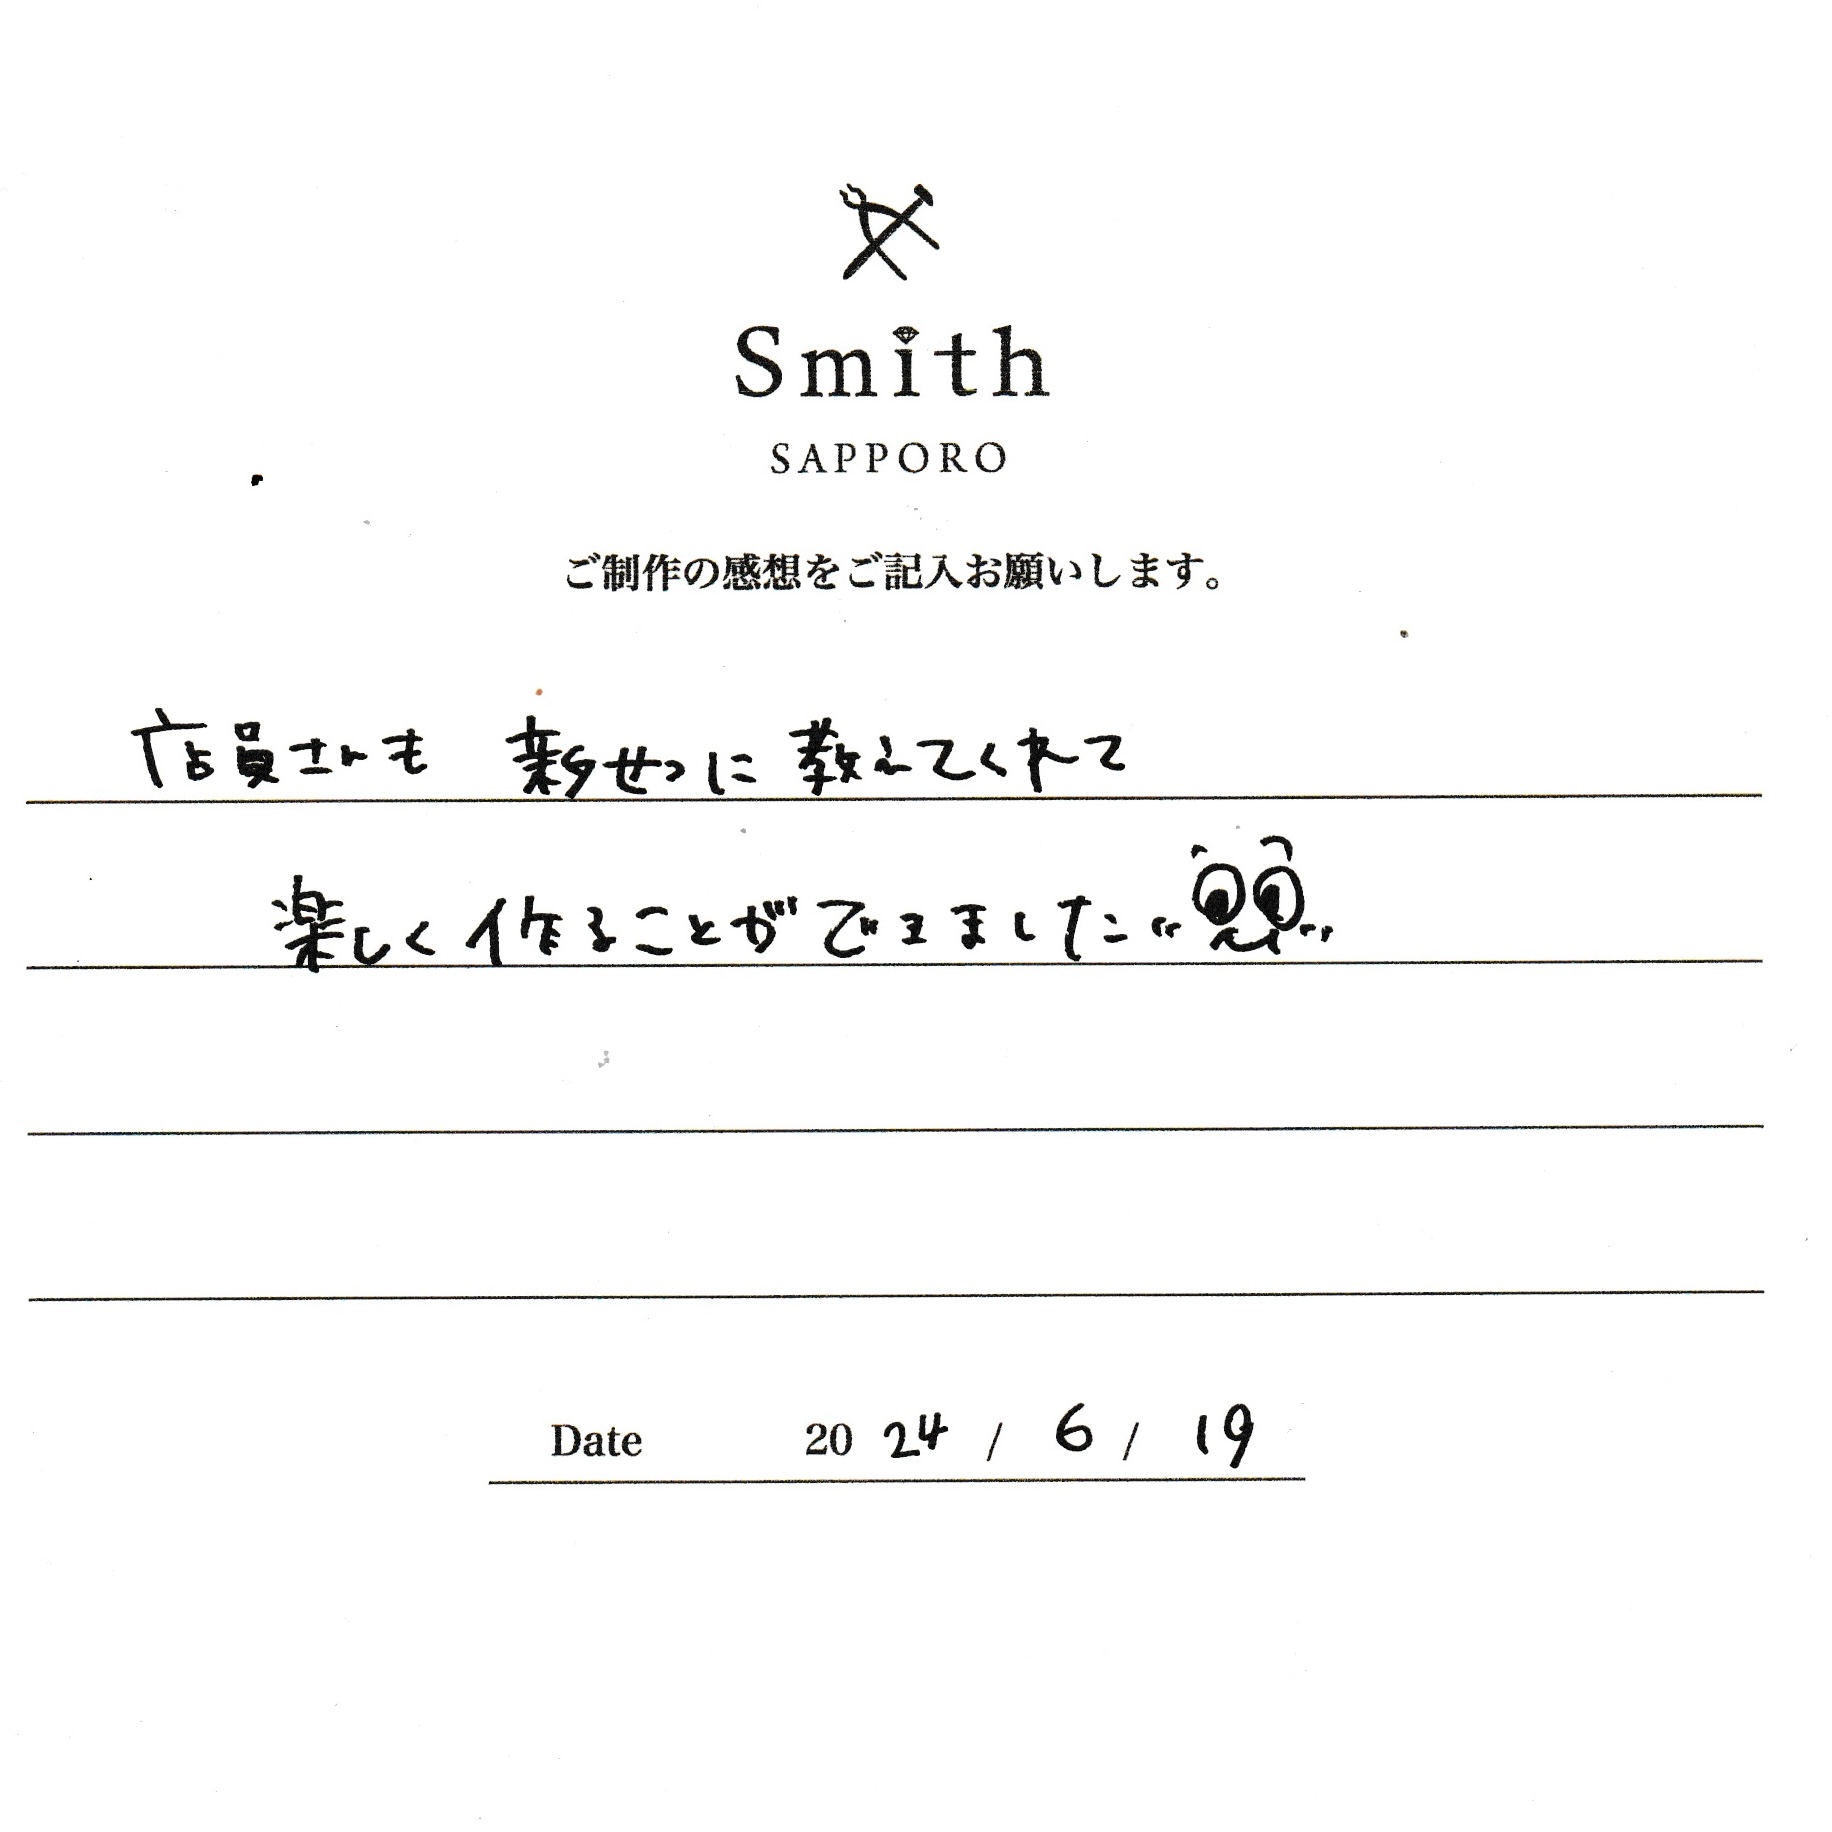 Smith
SAPPORO
ご制作の感想をご記入お願いします。
店員さんも 親せつに教えてくれて
楽しく作ることができました
Date 2024 / 6 / 19